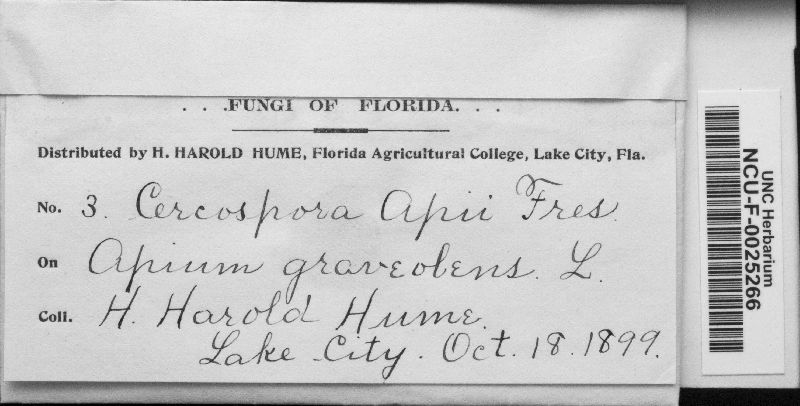 . . .FUNGI OF FLORIDA. . .
Distributed by H. HAROLD HUME, Florida Agricultural College, Lake City, Fla.
No. 3. Cercospora Apii Fres.
On Apium graveolens. L.
Coll. H. Harold Hume.
Lake City. Oct. 18. 1899.
UNC Herbarium
NCU-F-0025266